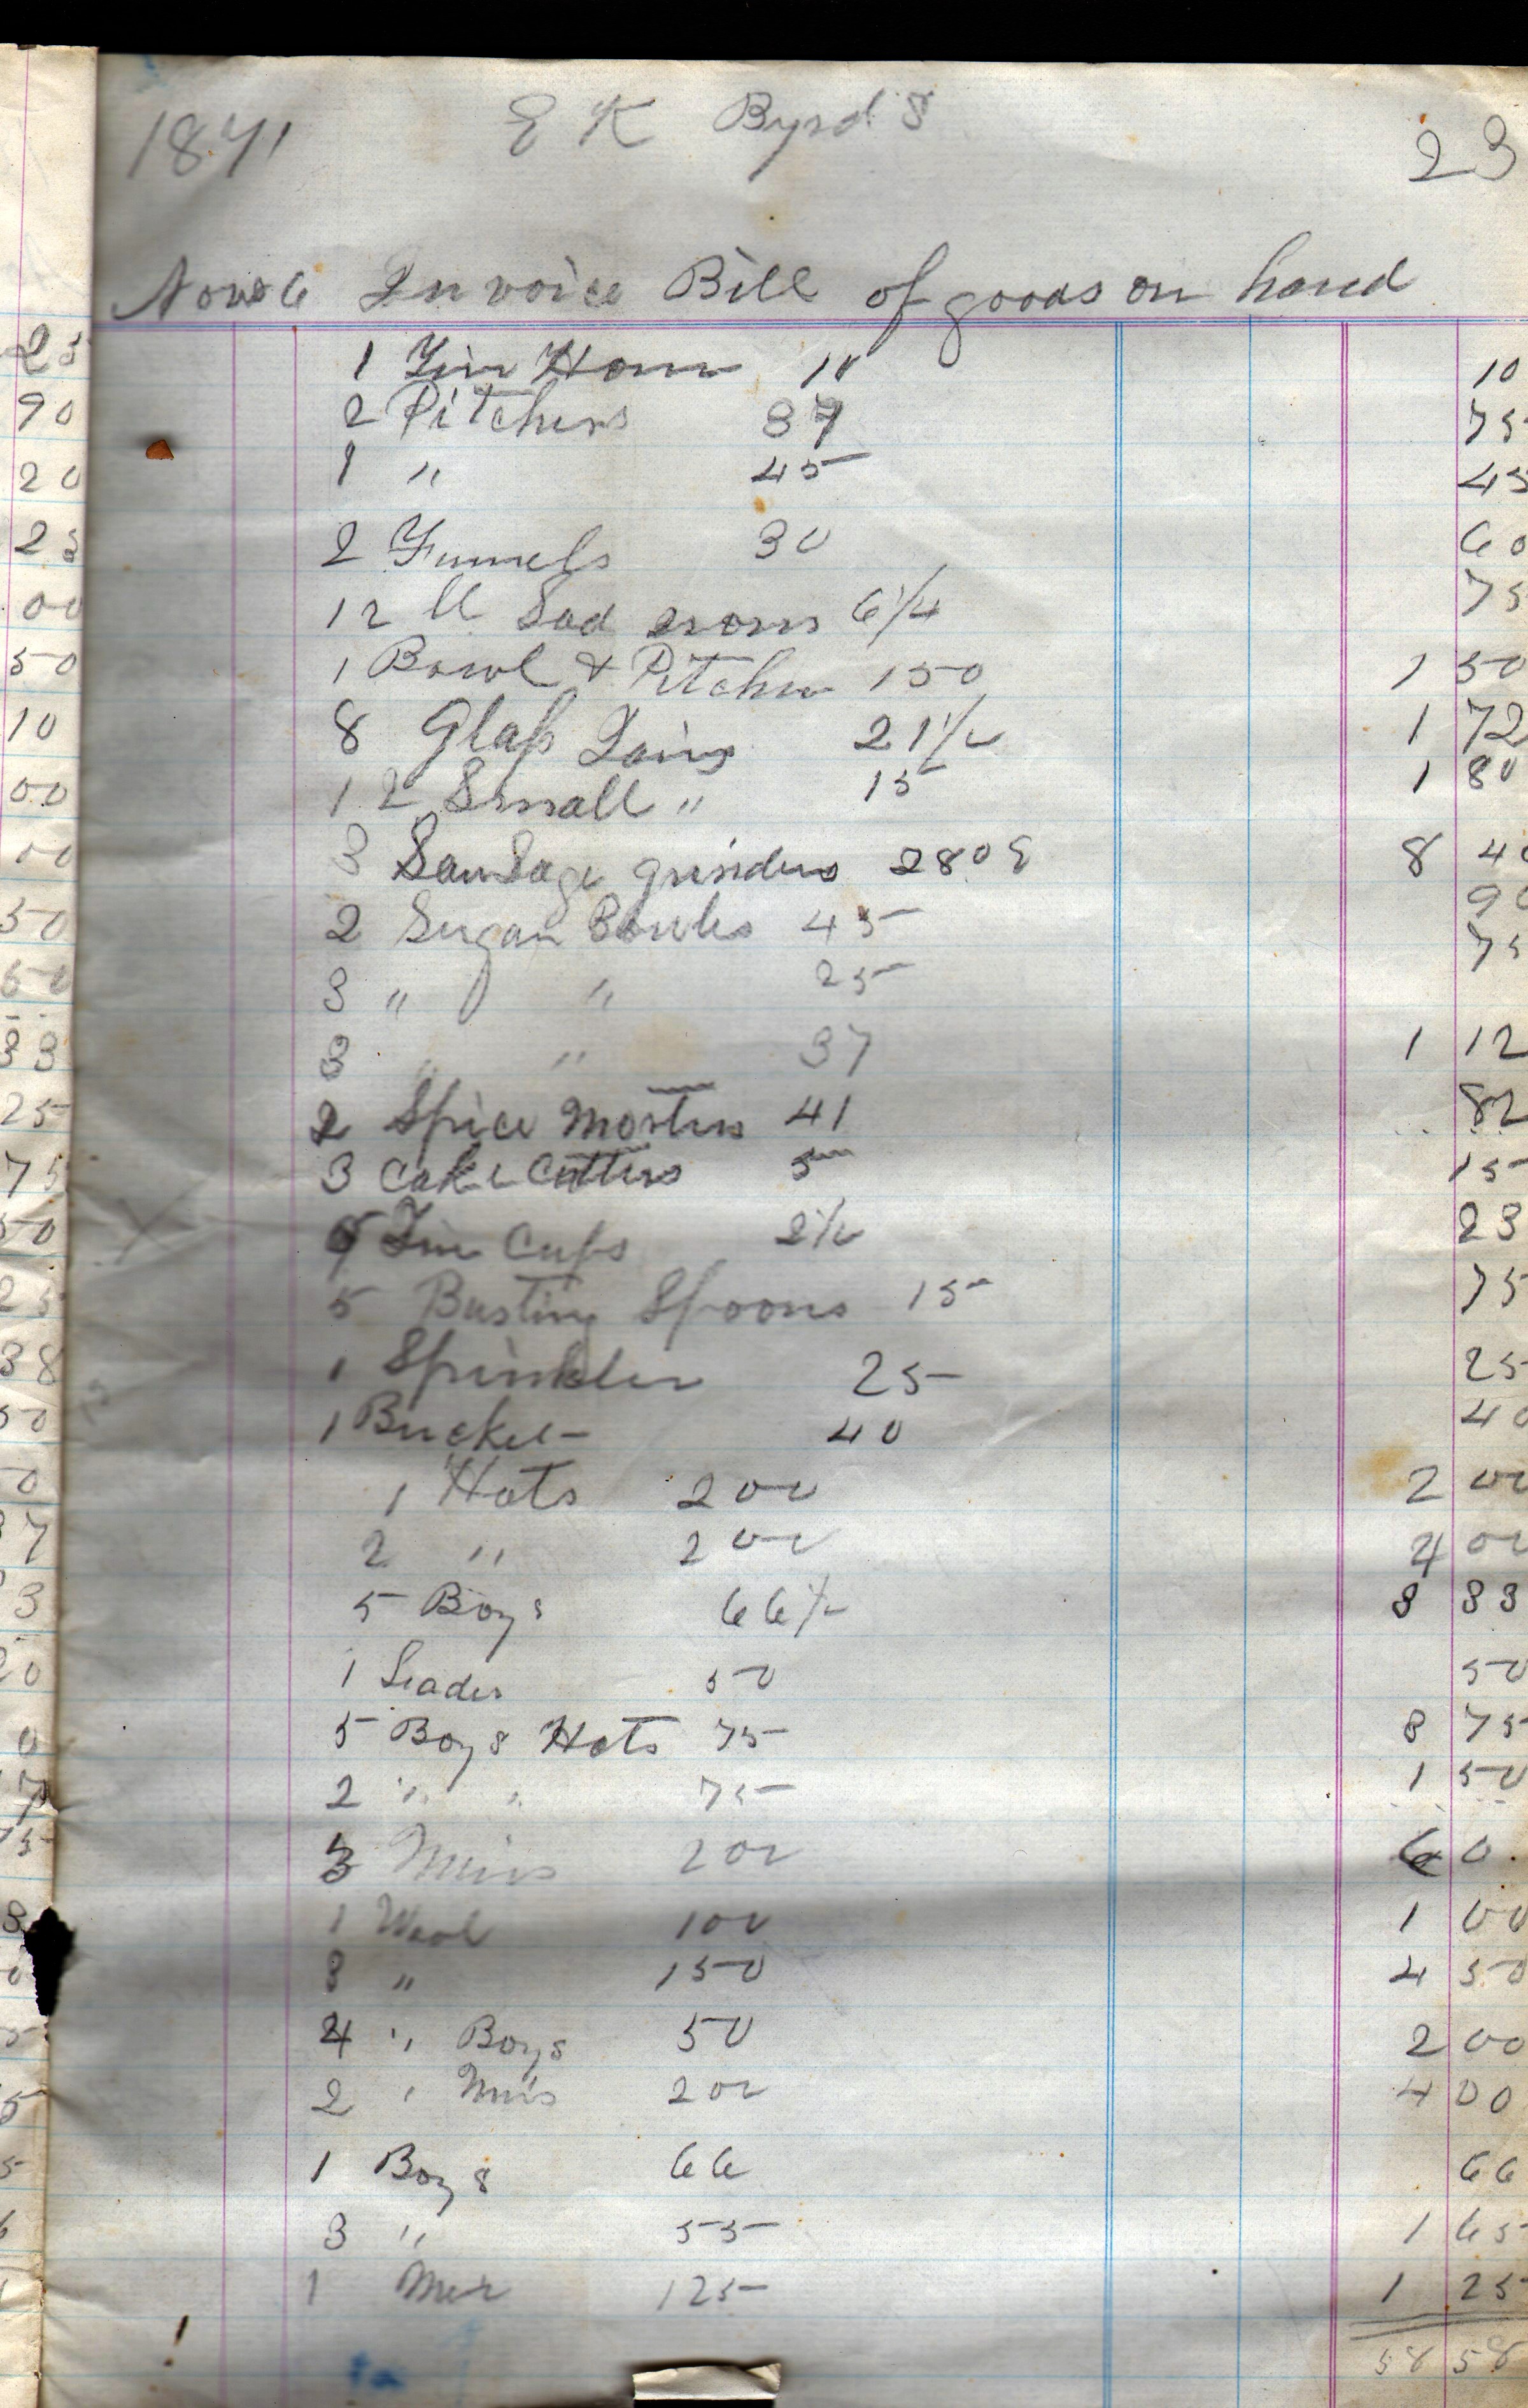 1871 E K Byrd's 23
Nov 6 Invoice Bill of goods on hand
1 Tin Horn 10 10
2 Pitchers 37 75
1 " 45 45
2 Funnels 30 60
12 lb Sad irons 6 1/4 75
1 Bowl & Pitcher 150 1 50
8 Glass Jars 21 1/2 1 72
12 Small " 15 1 80
3 Sausage grinders 280 8 40
2 Sugar Bowls 45 90
3 " " 25 75
3 " " 37 1 12
2 Spice Morters 41 82
3 Cake Cutters 5 15
9 Tin Cups 2 1/2 23
5 Basting Spoons 15 75
1 Sprinkler 25 25
1 Bucket 40 40
1 Hats 200 2 00
2 " 200 4 00
5 Boys 66 1/2 3 33
1 50 50
5 Boys Hats 75 3 75
2 " " 75 1 50
3 Mens 200 6 0
1 Wool 100 1 00
3 " 150 4 50
4 " Boys 50 2 00
2 " Mens 200 4 00
1 Boys 66 66
3 " 55 1 65
1 Men 125 1 25
58 58
25
90
20
25
00
50
10
00
00
50
50
33
25
75
50
25
38
50